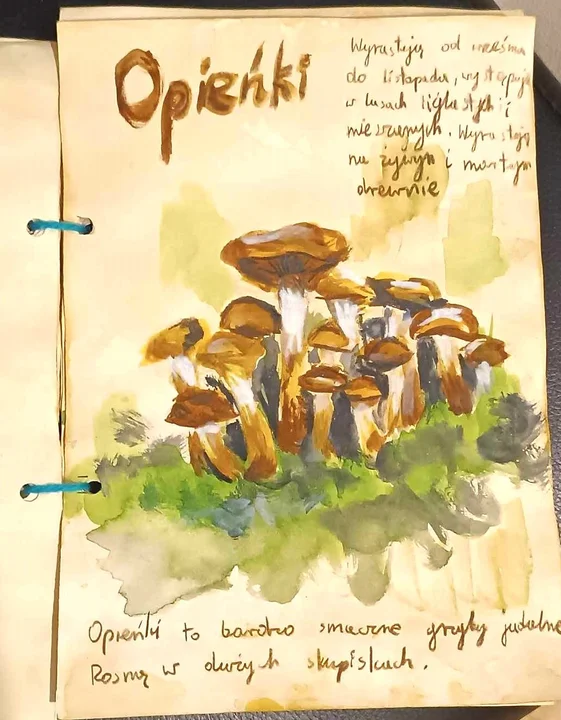 Opieńki
Wyrastają od września
do listopada, występują
w lasach liglastych i
mieszanych. Wyrastają
na żywym i martwym
drewnie
Opieńki to bardzo smaczne grzyby jadalne
Rosną w dużych skupiskach.